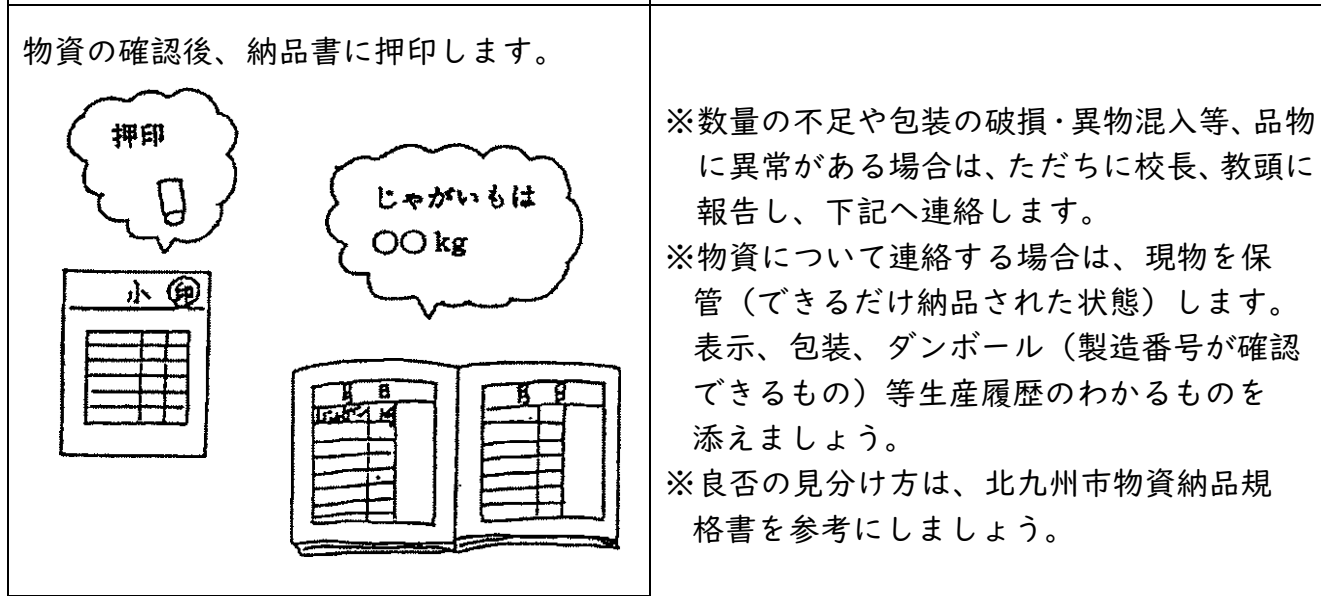 物資の確認後、納品書に押印します。
押印
じゃがいもは
○○kg
小 ㊞
月 日
月 日
※数量の不足や包装の破損・異物混入等、品物
に異常がある場合は、ただちに校長、教頭に
報告し、下記へ連絡します。
※物資について連絡する場合は、現物を保
管（できるだけ納品された状態）します。
表示、包装、ダンボール（製造番号が確認
できるもの）等生産履歴のわかるものを
添えましょう。
※良否の見分け方は、北九州市物資納品規
格書を参考にしましょう。